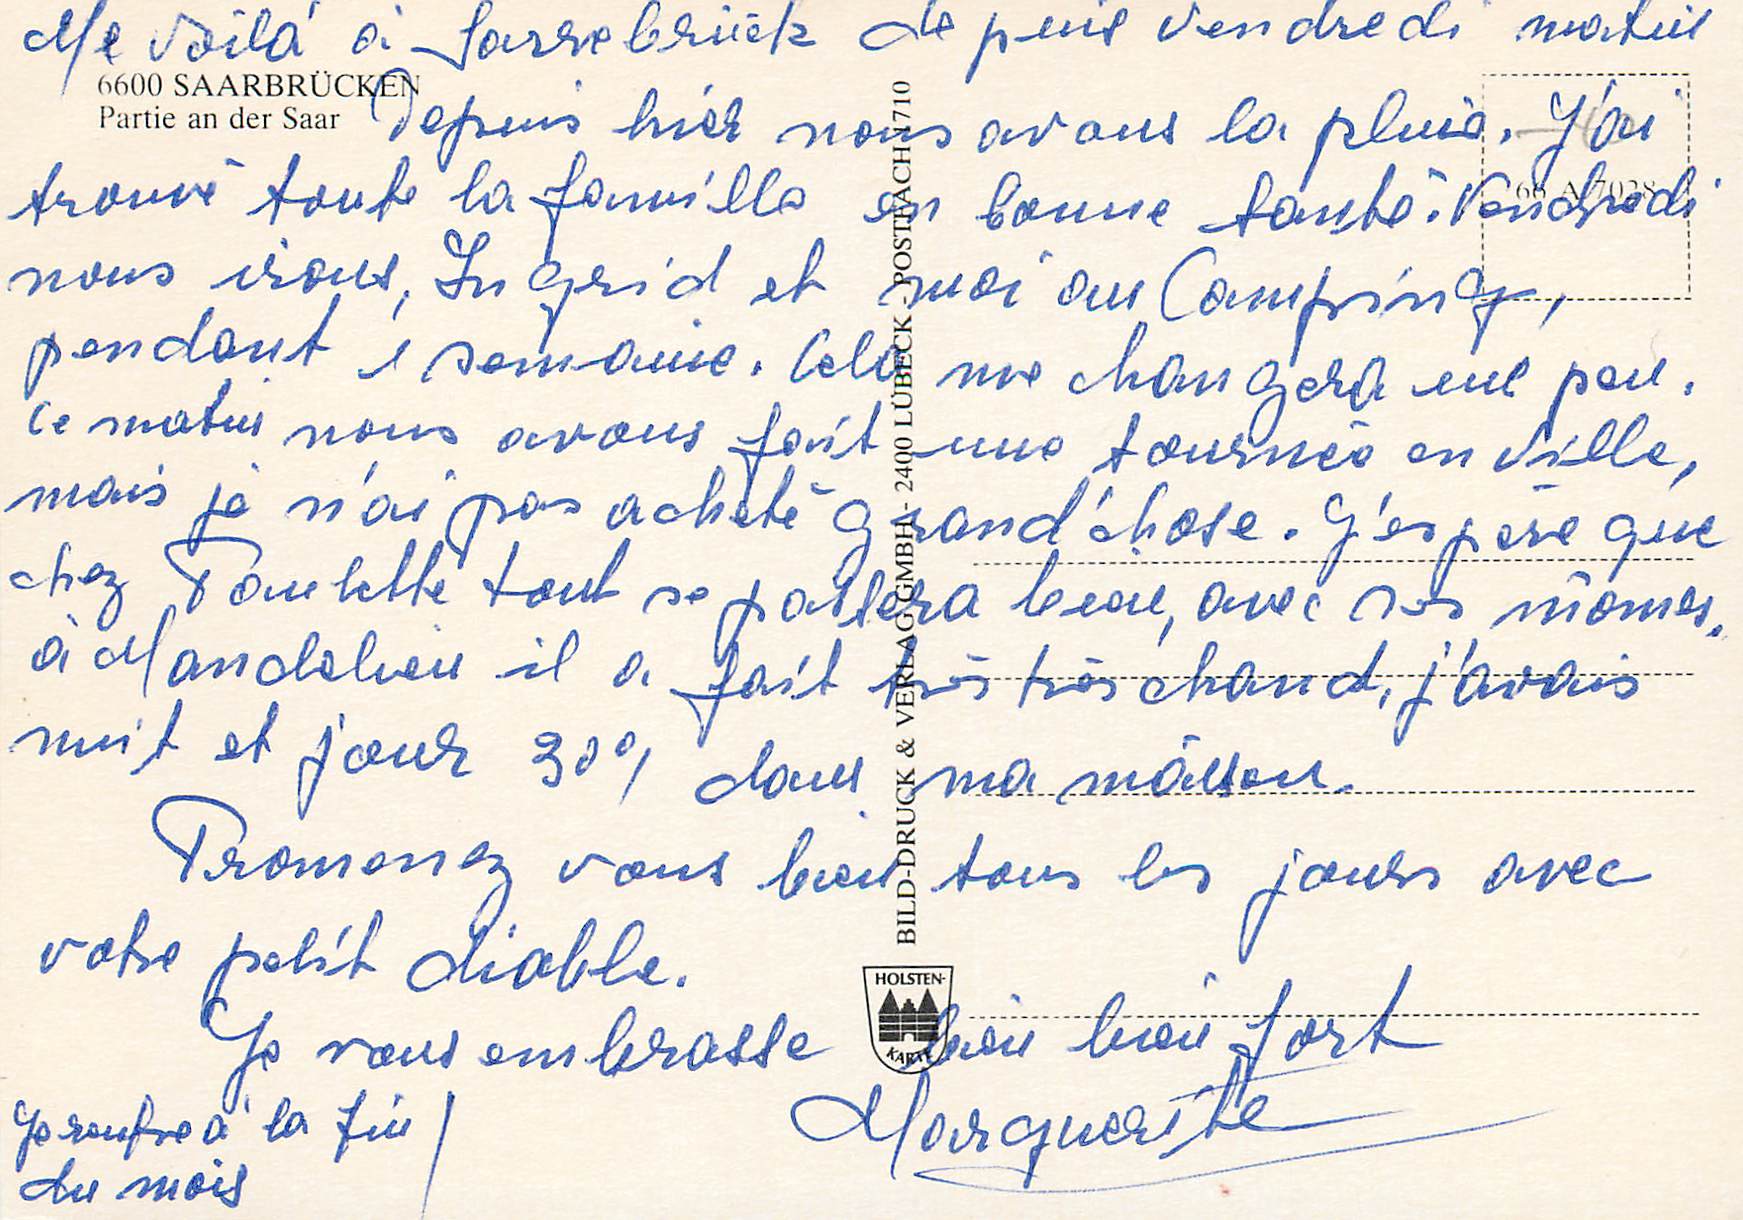 Me voilà à Sarrebrück depuis vendredi matin
6600 SAARBRÜCKEN
Partie an der Saar
Depuis hier nous avons la pluie. J'ai
trouvé toute la famille en bonne santé. Vendredi
nous irons, Ingrid et moi au Camping,
pendant 1 semaine. Cela me changera un peu.
Ce matin nous avons fait une tournée en ville,
mais je n'ai pas acheté grand'chose. J'espère que
chez Paulette tout se passera bien, avec ses mômes.
à Mandelieu il a fait très très chaud, j'avais
nuit et jour 30° dans ma maison.
Promenez vous bien tous les jours avec
votre petit diable.
Je vous embrasse bien bien fort
Marguerite
Je rentre à la fin
du mois
BILD-DRUCK & VERLAG GMBH - 2400 LÜBECK - POSTFACH 1710
66 A 7028
HOLSTEN-
KARTE